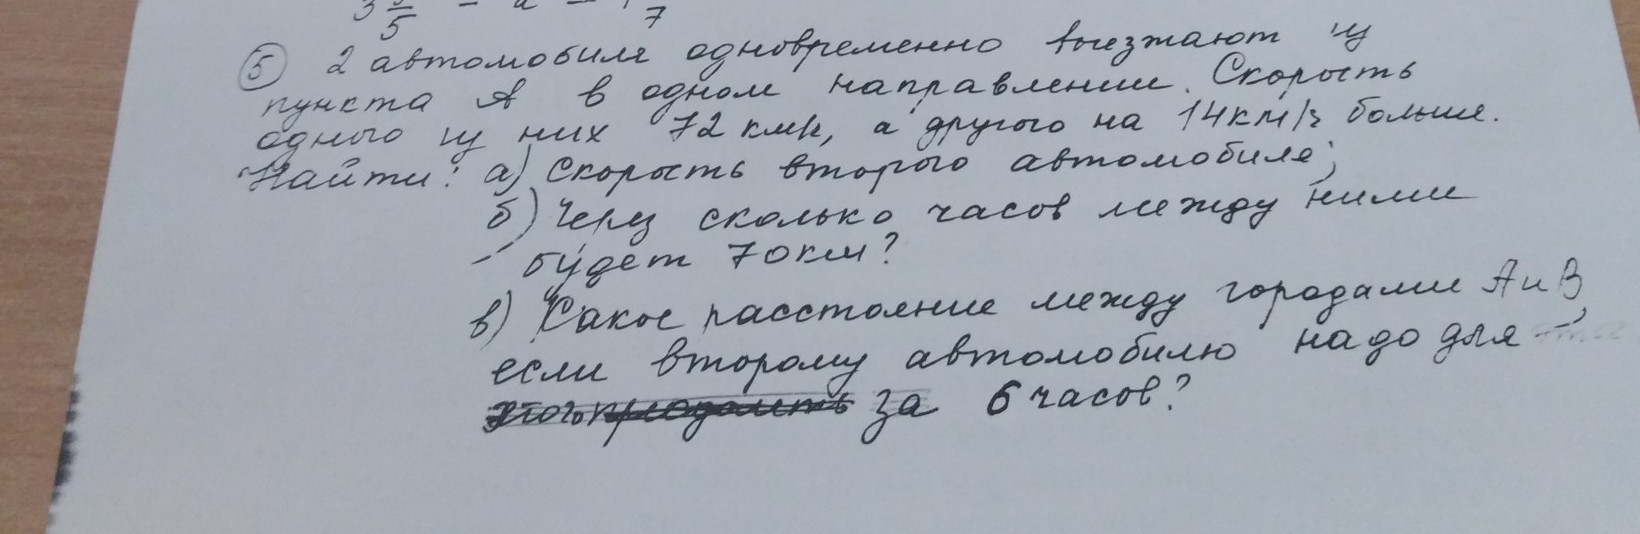 3 5 - а = 1 7
5 2 автомобиля одновременно выезжают из
пункта А в одном направлении. Скорость
одного из них 72 км/ч, а другого на 14 км/ч больше.
Найти: а) Скорость второго автомобиля;
б) Через сколько часов между ними
будет 70 км?
в) Какое расстояние между городами А и В,
если второму автомобилю надо для
за 6 часов?